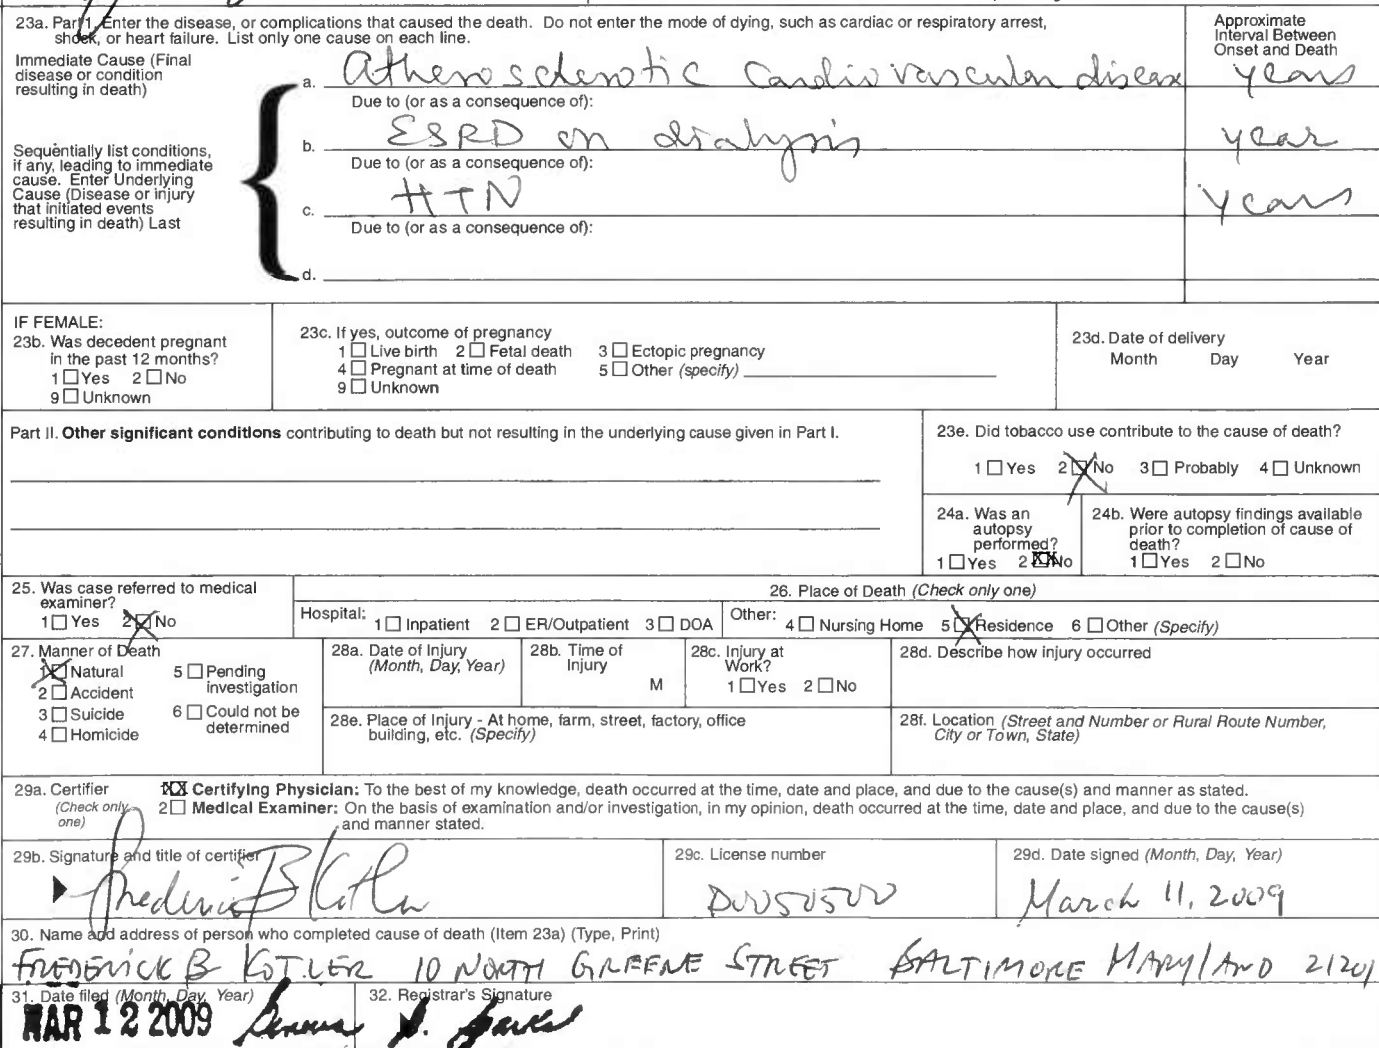 23a. Part 1. Enter the disease, or complications that caused the death. Do not enter the mode of dying, such as cardiac or respiratory arrest,
shock, or heart failure. List only one cause on each line.
Approximate
Interval Between
Onset and Death
Immediate Cause (Final
disease or condition
resulting in death)
a. Atherosclerotic Cardiovascular disease years
Due to (or as a consequence of):
b. ESRD on dialysis year
Due to (or as a consequence of):
Sequentially list conditions,
if any, leading to immediate
cause. Enter Underlying
Cause (Disease or injury
that initiated events
resulting in death) Last
c. HTN years
Due to (or as a consequence of):
d.
IF FEMALE:
23b. Was decedent pregnant
in the past 12 months?
1 ☐ Yes 2 ☐ No
9 ☐ Unknown
23c. If yes, outcome of pregnancy
1 ☐ Live birth 2 ☐ Fetal death 3 ☐ Ectopic pregnancy
4 ☐ Pregnant at time of death 5 ☐ Other (specify)
9 ☐ Unknown
23d. Date of delivery
Month Day Year
Part II. Other significant conditions contributing to death but not resulting in the underlying cause given in Part I.
23e. Did tobacco use contribute to the cause of death?
1 ☐ Yes 2 ☒ No 3 ☐ Probably 4 ☐ Unknown
24a. Was an
autopsy
performed?
1 ☐ Yes 2 XX No
24b. Were autopsy findings available
prior to completion of cause of
death?
1 ☐ Yes 2 ☐ No
25. Was case referred to medical
examiner?
1 ☐ Yes 2 ☒ No
26. Place of Death (Check only one)
Hospital: 1 ☐ Inpatient 2 ☐ ER/Outpatient 3 ☐ DOA Other: 4 ☐ Nursing Home 5 ☒ Residence 6 ☐ Other (Specify)
27. Manner of Death
1 ☒ Natural 5 ☐ Pending
investigation
2 ☐ Accident
3 ☐ Suicide 6 ☐ Could not be
determined
4 ☐ Homicide
28a. Date of Injury
(Month, Day, Year)
28b. Time of
Injury
M
28c. Injury at
Work?
1 ☐ Yes 2 ☐ No
28d. Describe how injury occurred
28e. Place of Injury - At home, farm, street, factory, office
building, etc. (Specify)
28f. Location (Street and Number or Rural Route Number,
City or Town, State)
29a. Certifier
(Check only
one)
XX Certifying Physician: To the best of my knowledge, death occurred at the time, date and place, and due to the cause(s) and manner as stated.
2 ☐ Medical Examiner: On the basis of examination and/or investigation, in my opinion, death occurred at the time, date and place, and due to the cause(s)
and manner stated.
29b. Signature and title of certifier
Frederick B Kotler
29c. License number
D0050500
29d. Date signed (Month, Day, Year)
March 11, 2009
30. Name and address of person who completed cause of death (Item 23a) (Type, Print)
FREDERICK B KOTLER 10 NORTH GREENE STREET BALTIMORE MARYLAND 21201
31. Date filed (Month, Day, Year)
MAR 12 2009
32. Registrar's Signature